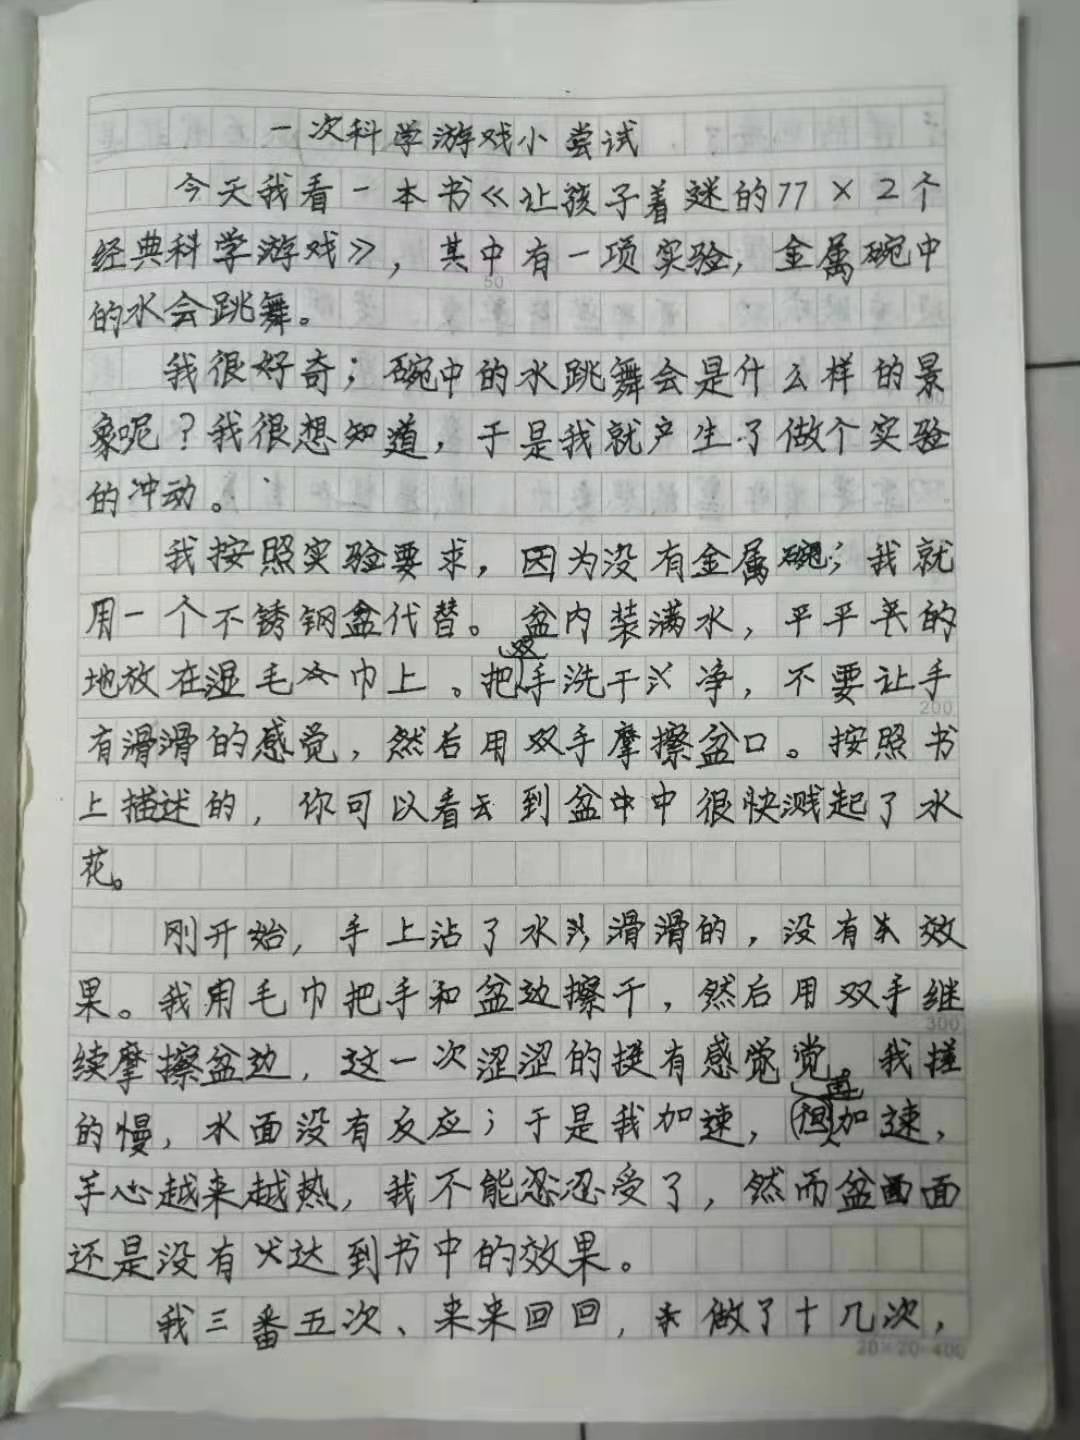 一次科学游戏小尝试
今天我看一本书《让孩子着迷的77×2个
经典科学游戏》，其中有一项实验，金属碗中
50
的水会跳舞。
我很好奇；碗中的水跳舞会是什么样的景
象呢？我很想知道，于是我就产生了做个实验
的冲动。
我按照实验要求，因为没有金属碗；我就
用一个不锈钢盆代替。盆内装满水，平平的
地放在湿毛巾上。把双手洗干净，不要让手
200
有滑滑的感觉，然后用双手摩擦盆口。按照书
上描述的，你可以看到盆中中很快溅起了水
花。
刚开始，手上沾了水滑滑的，没有效
果。我用毛巾把手和盆边擦干，然后用双手继
300
续摩擦盆边，这一次涩涩的挺有感觉觉。我搓
的慢，水面没有反应；于是我加速，再加速，
手心越来越热，我不能忍忍受了，然而盆面
还是没有达到书中的效果。
我三番五次、来来回回，做了十几次，
20×20=400